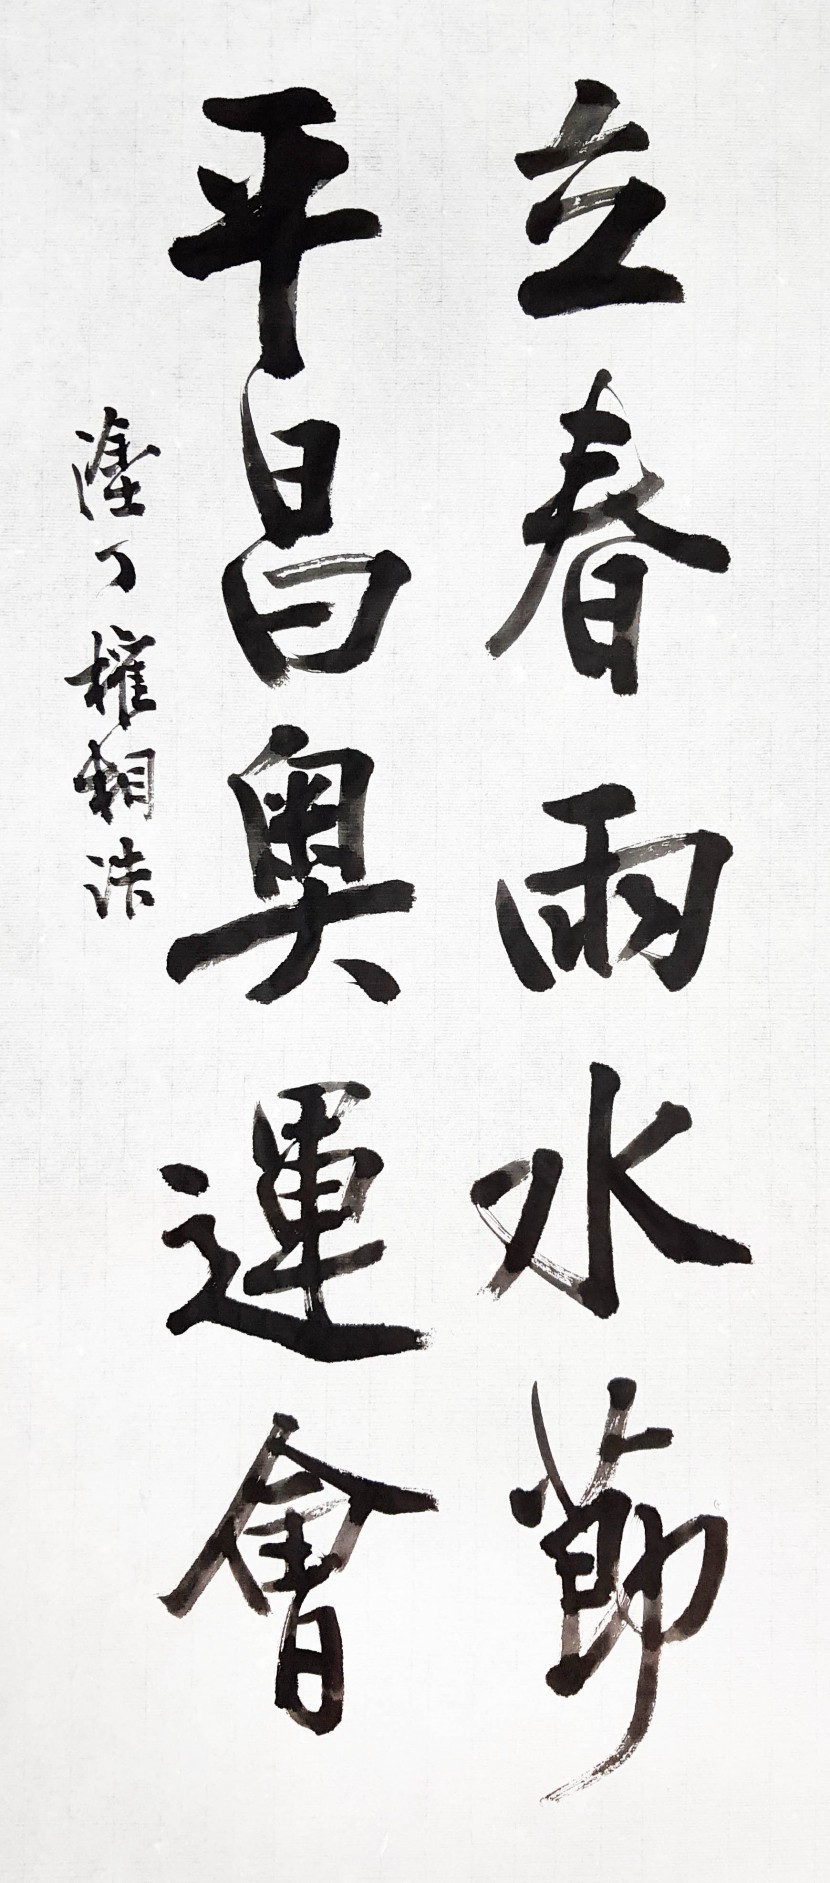 立春雨水節
平昌奧運會
丁權相浩